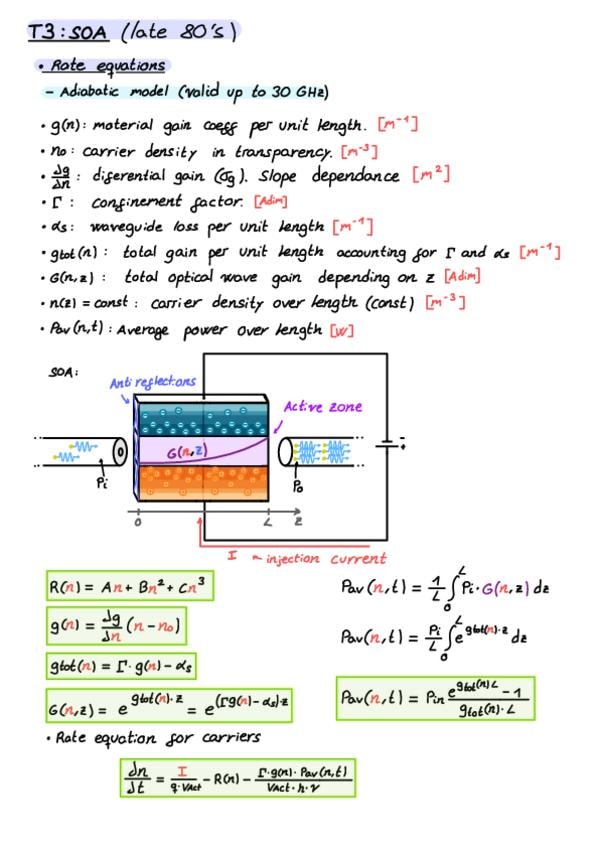 T3: SOA (late 80's)
• Rate equations
- Adiabatic model (valid up to 30 GHz)
• g(n): material gain coeff per unit length. [m⁻¹]
• n₀: carrier density in transparency. [m⁻³]
• dg/dn : diferential gain (σg). Slope dependance [m²]
• Γ : confinement factor. [Adim]
• αs: waveguide loss per unit length [m⁻¹]
• gtot(n): total gain per unit length accounting for Γ and αs [m⁻¹]
• G(n,z): total optical wave gain depending on z [Adim]
• n(z) = const : carrier density over length (const) [m⁻³]
• Pav(n,t): Average power over length [w]
SOA:
Anti reflections
Active zone
G(n,z)
Pi
Po
- +
0 L z
I ~ injection current
R(n) = An + Bn² + Cn³
g(n) = dg/dn (n - n₀)
gtot(n) = Γ · g(n) - αs
G(n,z) = e^(gtot(n)·z) = e^((Γg(n)-αs)·z)
Pav(n,t) = 1/L ∫₀ᴸ Pi · G(n,z) dz
Pav(n,t) = Pi/L ∫₀ᴸ e^(gtot(n)·z) dz
Pav(n,t) = Pin (e^(gtot(n)L) - 1)/(gtot(n)·L)
• Rate equation for carriers
dn/dt = I/(q·VAct) - R(n) - (Γ·g(n)·Pav(n,t))/(VAct·h·ν)